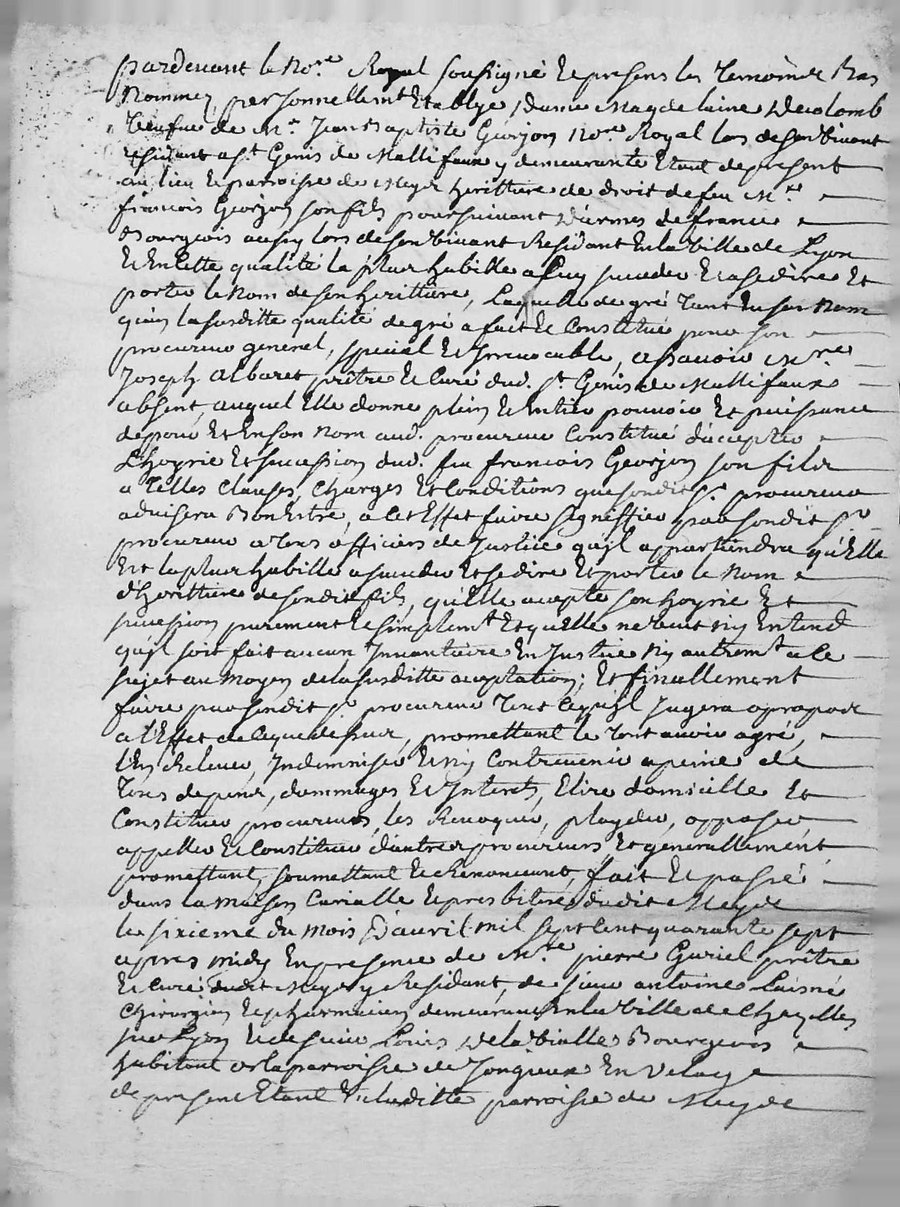 pardevant le no.re Royal soussigné et presens les temoins bas
nommez, personnellemt Establye, dame Magdelaine Decolomb
veufve de Mr Jean Baptiste Georjon no.re Royal lors de son vivant
résidant a St Genis de Mallifaux y demeurante Etant de present
au lieu et parroisse de heritiere de droit de feu M.re
francois Georjon son fils poursuivant d'armes de france
Bourgeois aussy lors de son vivant Residant En la ville de Lyon
Et En cette qualité la plus habille a luy succeder Et a se dire Et
porter le nom de son herittiere, laquelle de gré tant En son nom
qu'en la susditte qualité de gré a fait Et Constitué pour son
procureur general, special Et Irrevocable, a sçavoir M.re
Joseph Albaret prêtre Et Curé dud. St Genis de Mallifaux
absent, auquel Elle donne plein Et Entier pouvoir Et puissance
de pour Et En son nom aud. procureur Constitué d'accepter
L'hoyrie Et succession dud. feu francois Georjon son fils
a telles clauses, charges Et Conditions que sondit sr procureur
advisera Bon Estre, a cet Effet faire signiffier par sondit sr
procureur a tous officiers de Justice qu'il appartiendra qu'Elle
Est la plus habille a succeder Et se dire Et porter le nom
d'herittiere de sondit fils, qu'Elle accepte son hoyrie Et
succession purement Et simplemt Et qu'elle ne veut ny Entend
qu'il soit fait aucun Inventaire En Justice ny autremt a ce
sujet au moyen de la susditte acceptation; Et finallement
faire par sondit sr procureur tout ce qu'il Jugera a propos
a l'Effet de ce que dessus, promettant le tout avoir agré,
l'En Relever, Indemniser Et n'y Contrevenir a peine de
tous depens, dommages Et Interets, Elire domicille Et
Constituer procureurs, les Revoquer, playder, opposer,
appeller Et Constituer d'autres procureurs Et generallement
promettant, soumettant Et Renonceant, fait Et passé
dans la maison Curialle Et presbiteré dudit
le sixieme du mois D'avril mil sept cent quarante sept
apres midy En presence de M.re pierre Guriel prêtre
Et Curé dudit y Residant, de sieur antoine
Chirurgien Et pharmacien demeurant En la ville de
Et de sieur Louis Delavialle Bourgeois
habitant la parroisse de En Velay
de present Etant En laditte parroisse de